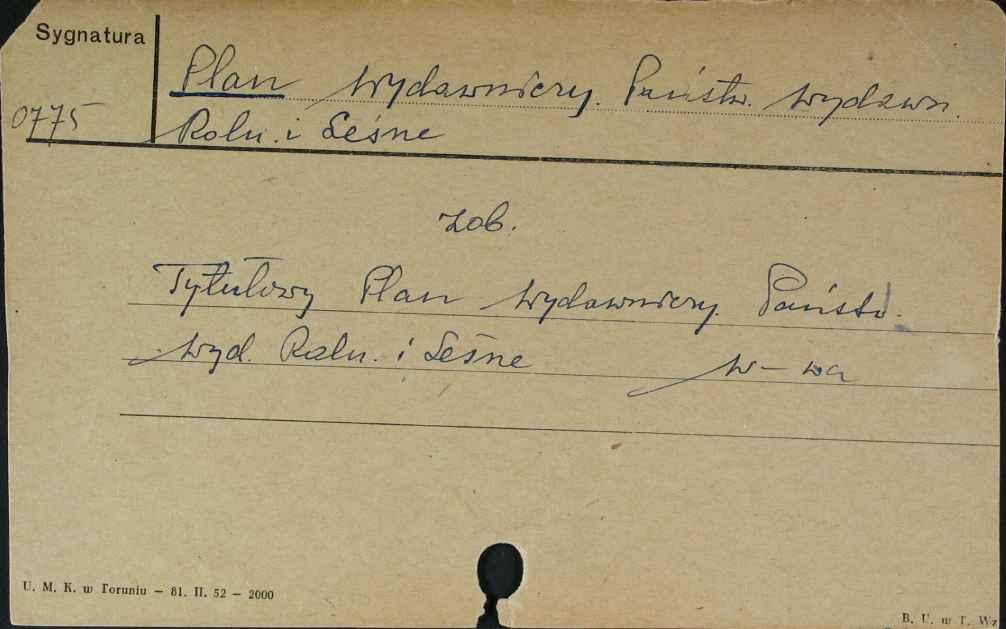 Sygnatura
Plan wydawniczy. Państw. wydawn.
0775
Roln. i Leśne
zob.
Tytułowy Plan wydawniczy. Państw.
wyd. Roln. i Leśne W-wa
U. M. K. w Toruniu — 81. II. 52 — 2000
B. U. w T. Wz